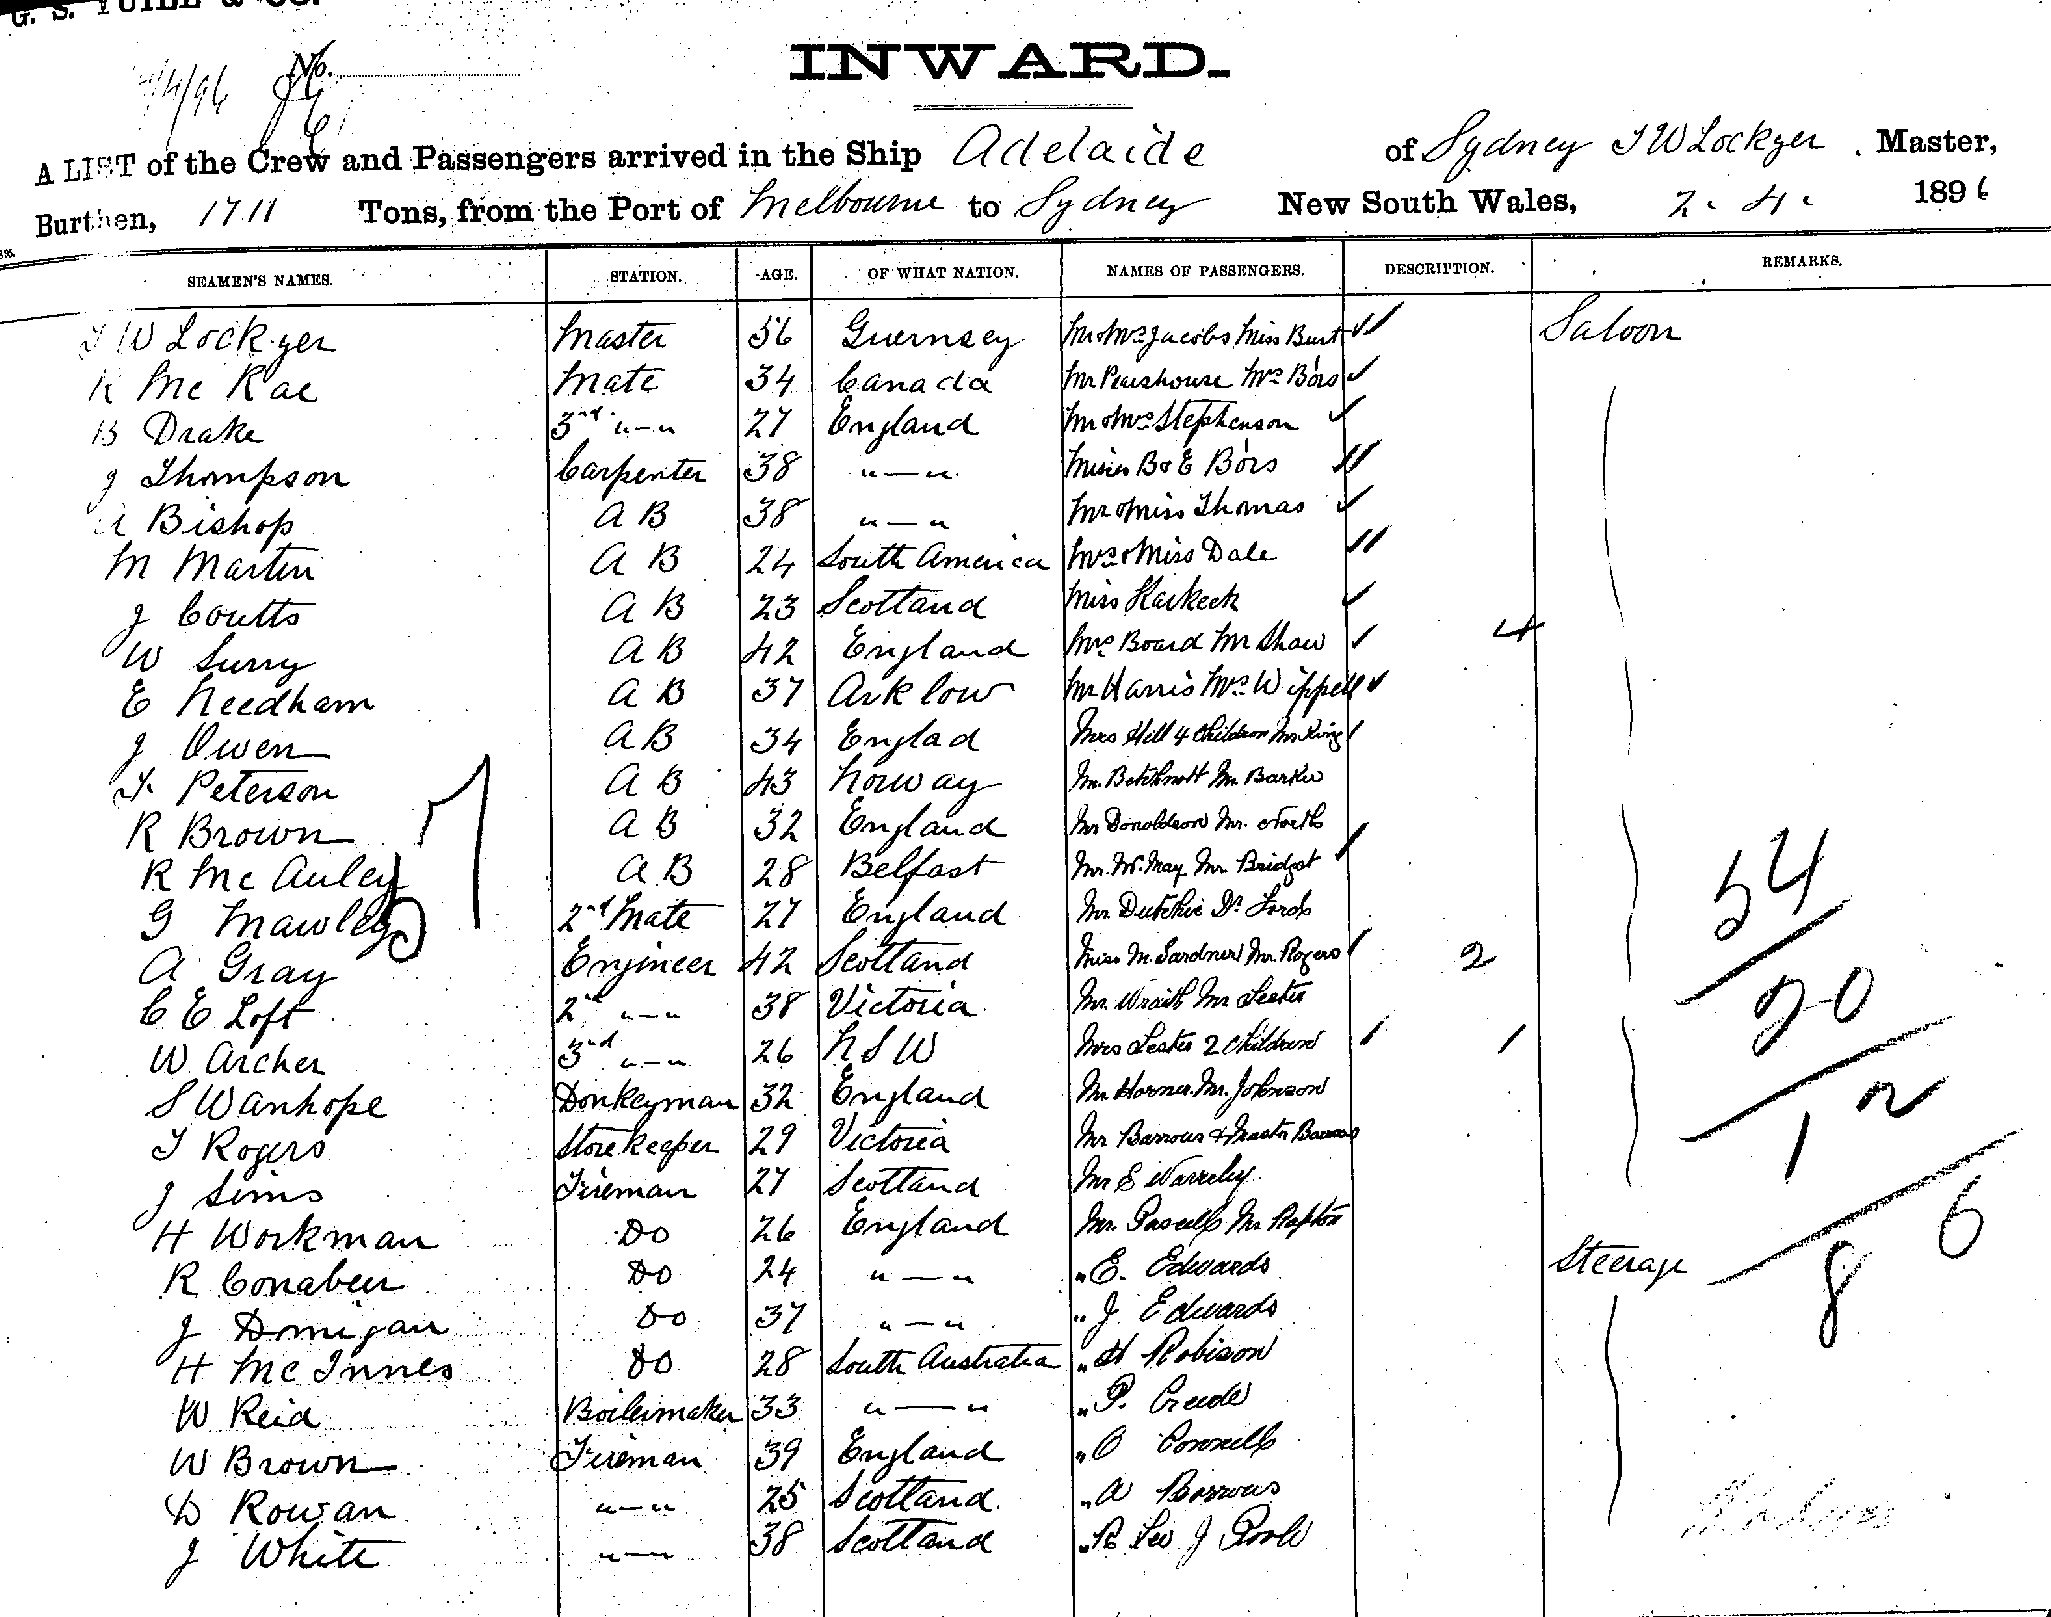 G. S. YUILL & CO.
INWARD.
4/96 No.
A LIST of the Crew and Passengers arrived in the Ship Adelaide of Sydney T W Lockyer. Master,
Burthen, 1711 Tons, from the Port of Melbourne to Sydney New South Wales, 2. 4. 1896
SEAMEN'S NAMES. STATION. AGE. OF WHAT NATION. NAMES OF PASSENGERS. DESCRIPTION. REMARKS.
T W Lockyer Master 56 Guernsey Mr & Mrs Jacobs Miss Burt Saloon
R Mc Rae Mate 34 Canada Mr Peershouse Mrs Bors
B Drake 3rd "—" 27 England Mr & Mrs Stephenson
J Thompson Carpenter 38 "—" Misses B & E Bors
A Bishop A B 38 "—" Mr & Miss Thomas
M Martin A B 24 South America Mrs & Miss Dale
J Coutts A B 23 Scotland Miss Harkeek
W Surry A B 42 England Mrs Board Mr Shaw 4
E Needham A B 37 Arklow Mr Harris Mrs Wippell
J Owen A B 34 Englad Mrs Hill 4 Children Mr King
F Peterson A B 43 Norway Mr. Mr. Barker
R Brown A B 32 England Mr Donaldson Mr.
R Mc Auley A B 28 Belfast Mr. May Mr
G Mawley 2nd Mate 27 England Mr Duthie Dr
A Gray Engineer 42 Scotland Miss M. Gardner Mr. Rogers 2
C E Loft 2nd "—" 38 Victoria Mr. Wraith Mr Lester
W Archer 3rd "—" 26 N S W Mrs Lester 2 Children 1
S Wanhope Donkeyman 32 England Mr Horner Mr. Johnson
T Rogers Storekeeper 29 Victoria Mr Barrows & Master Barrows
J Sims Fireman 27 Scotland Mr E
H Workman Do 26 England Mr. Mr
R Conabeer Do 24 "—" " E. Edwards Steerage
J Donigan Do 37 "—" " J Edwards
H Mc Innes Do 28 South Australia " H Robison
W Reid Boilermaker 33 "—" " P.
W Brown Fireman 39 England " O Connell
D Rowan "—" 25 Scotland " A Barrows
J White "—" 38 Scotland " R J Poole
54
20
12
8 6